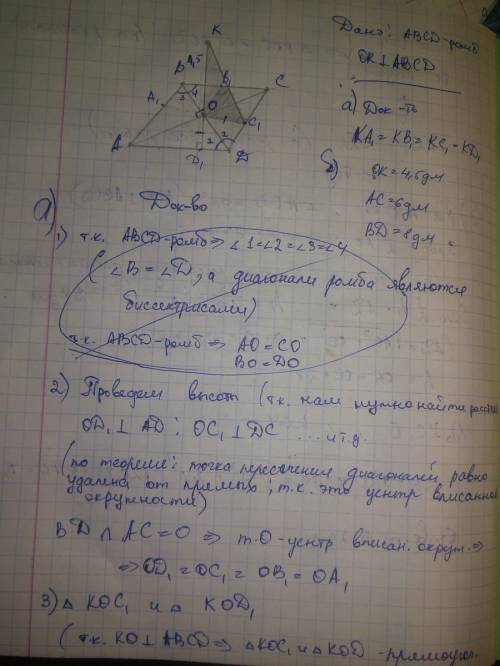 K
Дано: ABCD-ромб
OK ⊥ ABCD
4,5
B
B₁
C
3 4
A₁
O
1
C₁
A
2
2
D₁
D
а) Док-ть
KA₁ = KB₁ = KC₁ = KD₁
б) OK = 4,5 дм
AC = 6 дм
BD = 8 дм
а) Док-во
1) т.к. ABCD-ромб ⇒ ∠1=∠2=∠3=∠4
(∠B = ∠D, а диагонали ромба являются
биссектрисами)
т.к. ABCD-ромб ⇒ AO = CO
BO = DO
2) Проведем высоты (т.к. нам нужно найти
OD₁ ⊥ AD; OC₁ ⊥ DC ... и т.д.
(по теореме: точка пересечения диагоналей равно
удалена от прямых; т.к. это центр вписанной
окружности)
BD ∩ AC = O ⇒ т.O - центр вписан. окруж. ⇒
⇒ OD₁ = OC₁ = OB₁ = OA₁
3) △ KOC₁ и △ KOD₁
(т.к. KO ⊥ ABCD ⇒ △KOC₁ и △KOD - прямоугол.